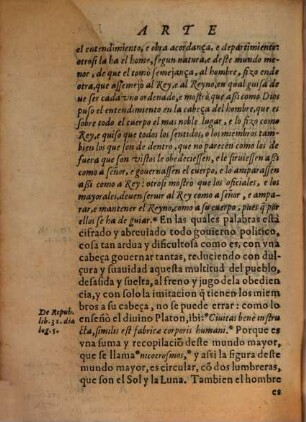 ARTE
el entendimiento, e obra acordança, e departimiento:
otrosi la ha el home, segun natura, e deste mundo me
nor, de que el tomò semejança, al hombre, fizo ende
otra, que assemejo al Rey, e al Reyno, en qual guisa de
ue ser cada vno ordenado, e mostrò, que assi como Dios
puso el entendimiento en la cabeça del hombre, que es
sobre todo el cuerpo el mas noble lugar, e lo fizo como
Rey, e quiso que todos los sentidos, o los miembros tam
bien los que son de dentro, que no parecen como los de
fuera que son vistos le obedeciessen, e le siruiessen assi
como a señor, e gouernassen el cuerpo, e lo amparassen
assi como a Rey: otrosi mostrò que los oficiales, e los
mayorales, deuen seruir al Rey como a señor, e ampa-
rar, e mantener el Reyno, como a su cuerpo, pues q̃ por
ellos se ha de guiar. En las quales palabras està
cifrado y abreuiado todo gouierno politico,
cosa tan ardua y dificultosa como es, con vna
cabeça gouernar tantas, reduciendo con dul-
çura y suauidad aquesta multitud del pueblo,
desatada y suelta, al freno y jugo dela obedien
cia, y con solo la imitacion q̃ tienen los miem-
bros a su cabeça, no se puede errar: como lo
De Repub. lib. 32. dia
log. 5.
enseñò el diuino Platon, ibi: Ciuitas benè instru
cta, similis est fabricæ corporis humani. Porque es
vna suma y recopilaciò deste mundo mayor,
que se llama microcosmos, y assi la figura deste
mundo mayor, es circular, cõ dos lumbreras,
que son el Sol y la Luna. Tambien el hombre
es